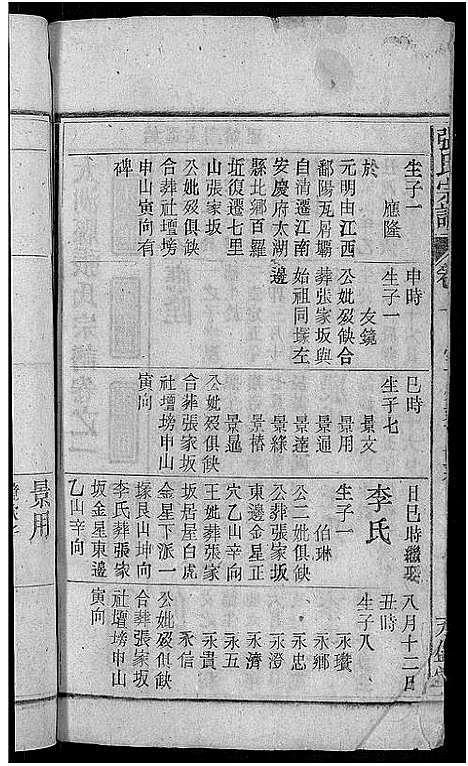 張氏宗譜
生子一
應隆
於
元明由江西
鄱陽瓦屑壩
自洧遷江南
安慶府太湖
縣北鄉百羅
坵復遷七里
山張家坂
公妣歿俱缺
合葬社壇塝
申山寅向有
碑
申時
生子一
友鏡
公妣歿缺合
葬張家坂與
始祖同塚左
邊
巳時
生子七
景文
景用
景通
景達
景綠
景椿
景暹
公妣歿俱缺
合葬張家坂
社壇塝申山
寅向
日巳時繼娶
李氏
生子一
伯琳
公二妣俱缺
公葬張家坂
東邊金星正
穴乙山辛向
王妣葬張家
坂居屋白虎
金星下派一
塚艮山坤向
李氏葬張家
坂金星東邊
乙山辛向
景用
八月十二日
丑時
生子八
永瓚
永鄉
永忠
永澄
永濟
永五
永貴
永信
公妣歿俱缺
合葬張家坂
社壇塝申山
寅向